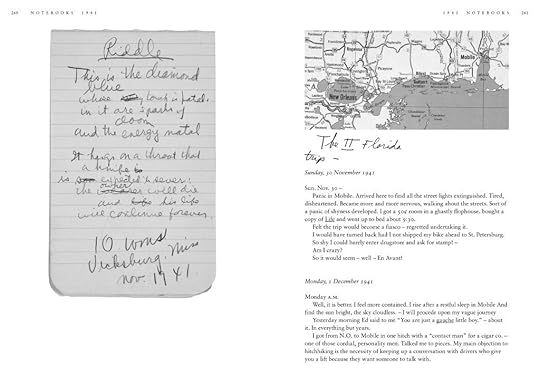 240 NOTEBOOKS 1941
Riddle
This is the diamond
blue
whose touch is fatal.
in it are sparks of
doom
and the energy
It hangs on a throat that
a knife is
is expected to sever.
the owner will die
and his life
will continue forever.
10 WMS
Vicksburg, Miss
Nov. 1941
1941 NOTEBOOKS 241
New Orleans
Mobile
Biloxi
The II Florida
trips –
Sunday, 30 November 1941
Sun. Nov. 30 –
Panic in Mobile. Arrived here to find all the street lights extinguished. Tired,
disheartened. Became more and more nervous, walking about the streets. Sort of
a panic of shyness developed. I got a 50¢ room in a ghastly flophouse, bought a
copy of Life and went up to bed about 9:30.
Felt the trip would become a fiasco – regretted undertaking it.
I would have turned back had I not shipped my bike ahead to St. Petersburg.
So sky I could barely enter drugstore and ask for stamp! –
Am I crazy?
So it would seem – well – En Avant!
Monday, 1 December 1941
Monday A.M.
Well, it is better. I feel more contained. I rise after a restful sleep in Mobile And
find the sun bright, the sky cloudless. – I will proceed upon my vague journey
Yesterday morning Ed said to me "You are just a gauche little boy." – about
it. In everything but years.
I got from N.O. to Mobile in one hitch with a "contact man" for a cigar co. –
one of those cordial, personality men. Talked me to pieces. My main objection to
hitchhiking is the necessity of keeping up a conversation with drivers who give
you a lift because they want someone to talk with.